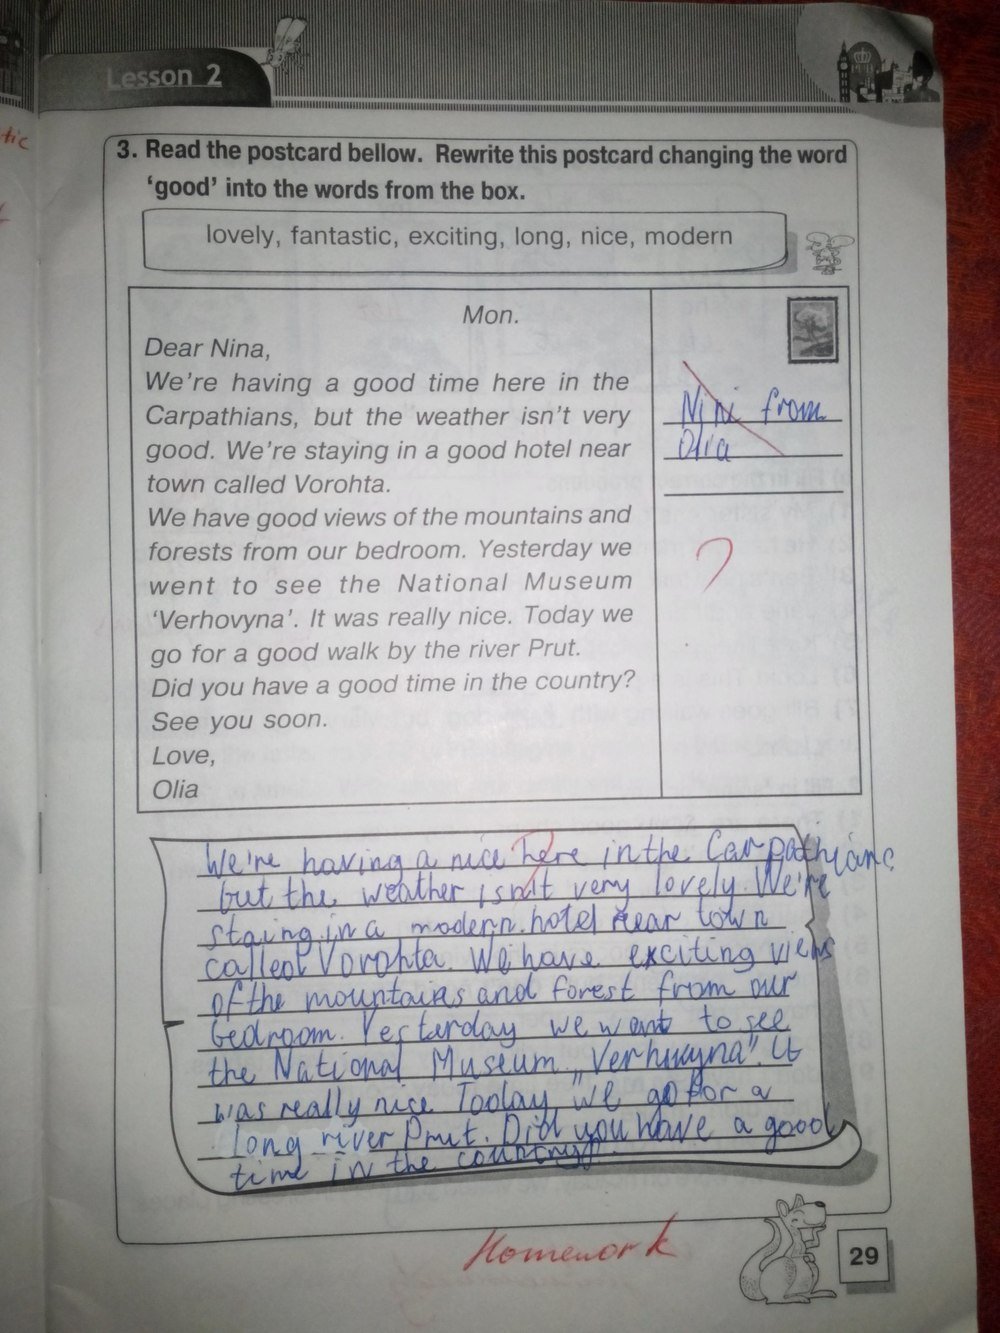 tic
Lesson 2
3. Read the postcard bellow. Rewrite this postcard changing the word
'good' into the words from the box.
lovely, fantastic, exciting, long, nice, modern
Mon.
Dear Nina,
We're having a good time here in the
Carpathians, but the weather isn't very
good. We're staying in a good hotel near
town called Vorohta.
We have good views of the mountains and
forests from our bedroom. Yesterday we
went to see the National Museum
'Verhovyna'. It was really nice. Today we
go for a good walk by the river Prut.
Did you have a good time in the country?
See you soon.
Love,
Olia
Nini from
Olia
?
We're having a nice here in the Carpathians
but the weather isn't very lovely. We're
staing in a modern hotel near town
called Vorohta. We have exciting views
of the mountains and forest from our
bedroom. Yesterday we want to see
the National Museum It
was really nice. Today we go for a
long river Prut. Did you have a good
time in the country?
Homework
29